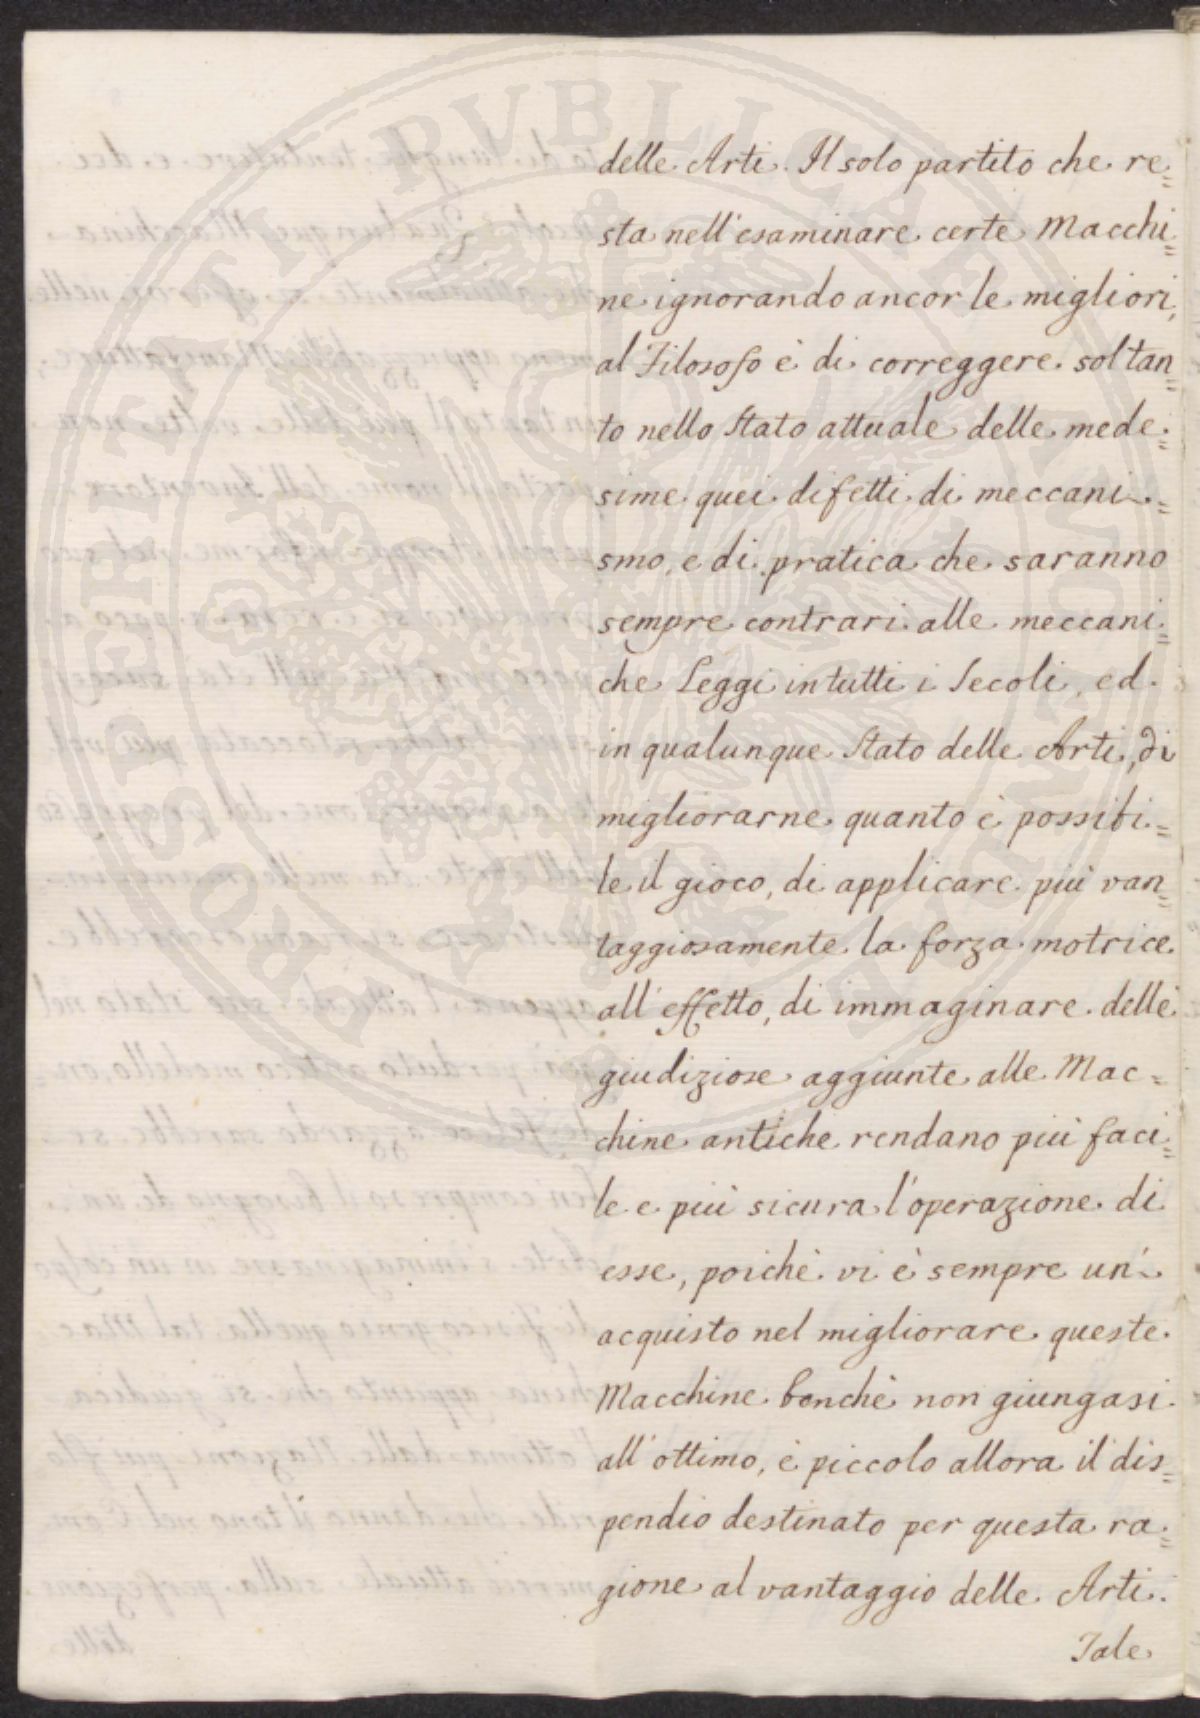 delle Arti. Il solo partito che re=
sta nell'esaminare certe Macchi=
ne ignorando ancor le migliori,
al Filosofo è di correggere soltan=
to nello Stato attuale delle mede=
sime quei difetti di meccani=
smo, e di pratica che saranno
sempre contrari alle meccani=
che Leggi in tutti i Secoli, ed
in qualunque Stato delle Arti, di
migliorarne quanto è possibi=
le il gioco, di applicare più van=
taggiosamente la forza motrice
all'effetto, di immaginare delle
giudiziose aggiunte alle Mac=
chine antiche rendano più faci=
le e più sicura l'operazione di
esse, poichè vi è sempre un'
acquisto nel migliorare queste
Macchine benchè non giungasi
all'ottimo, è piccolo allora il dis=
pendio destinato per questa ra=
gione al vantaggio delle Arti.
Tale
PROSPERITATI PUBLICAE AUGENDAE